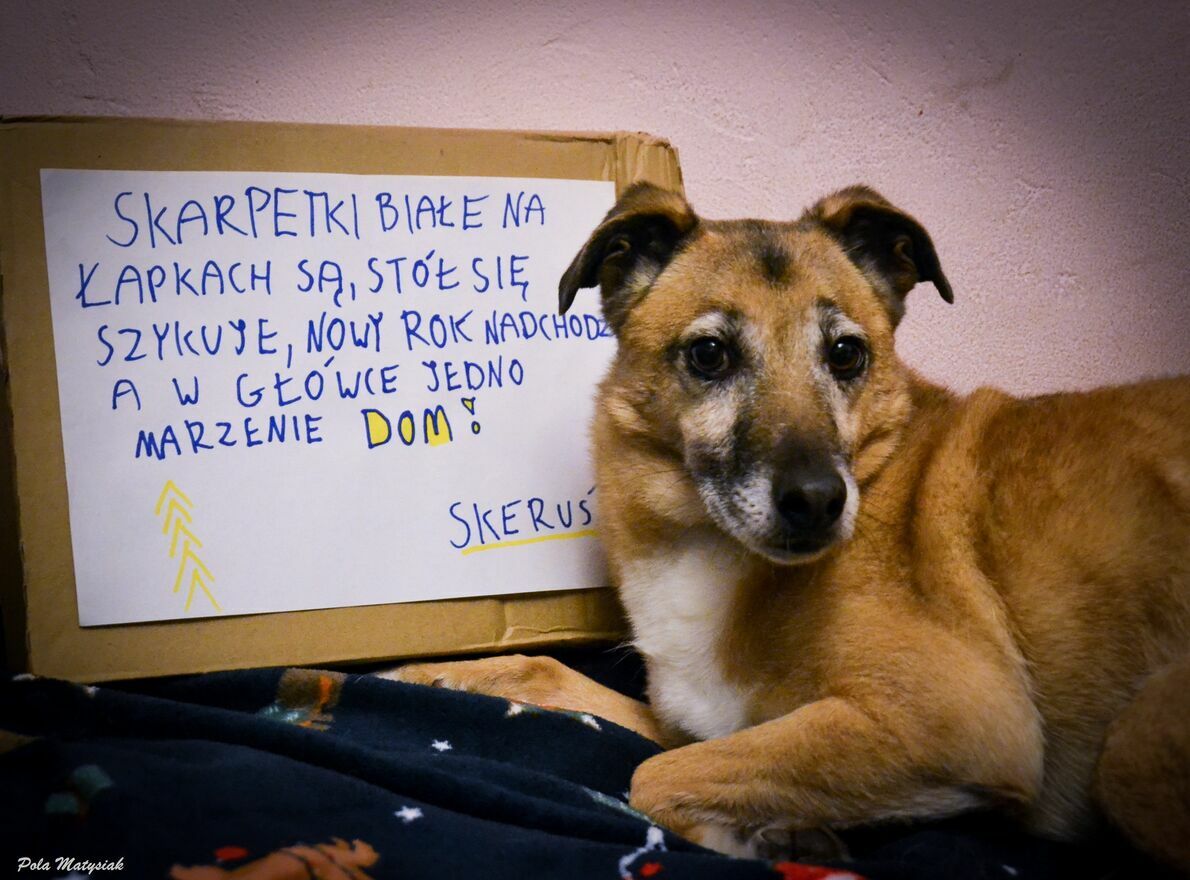 SKARPETKI BIAŁE NA
ŁAPKACH SĄ, STÓŁ SIĘ
SZYKUJE, NOWY ROK NADCHODZ
A W GŁÓWCE JEDNO
MARZENIE DOM!
SKERUŚ
Pola Matysiak